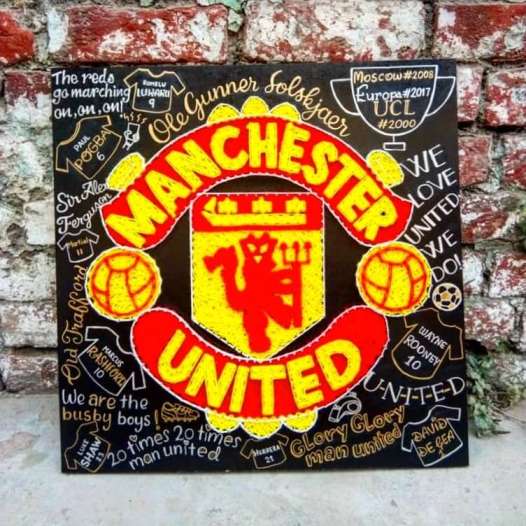 The reds
go marching
on, on, on!
ROMELU
LUKAKU
9
Ole Gunner Solskjaer
Moscow#2008
Europa#2017
UCL
#2000
PAUL
POGBA
6
MANCHESTER
WE
LOVE
UNITED
WE
DO!
Sir Alex
Ferguson
Martial
11
Old Trafford
MARCUS
RASHFORD
10
WAYNE
ROONEY
10
UNITED
U-N-I-T-E-D
We are the
busby boys
LUKE
SHAW
23
20 times 20 times
man united
HERRERA
21
Glory Glory
man united
DAVID
DE GEA
1